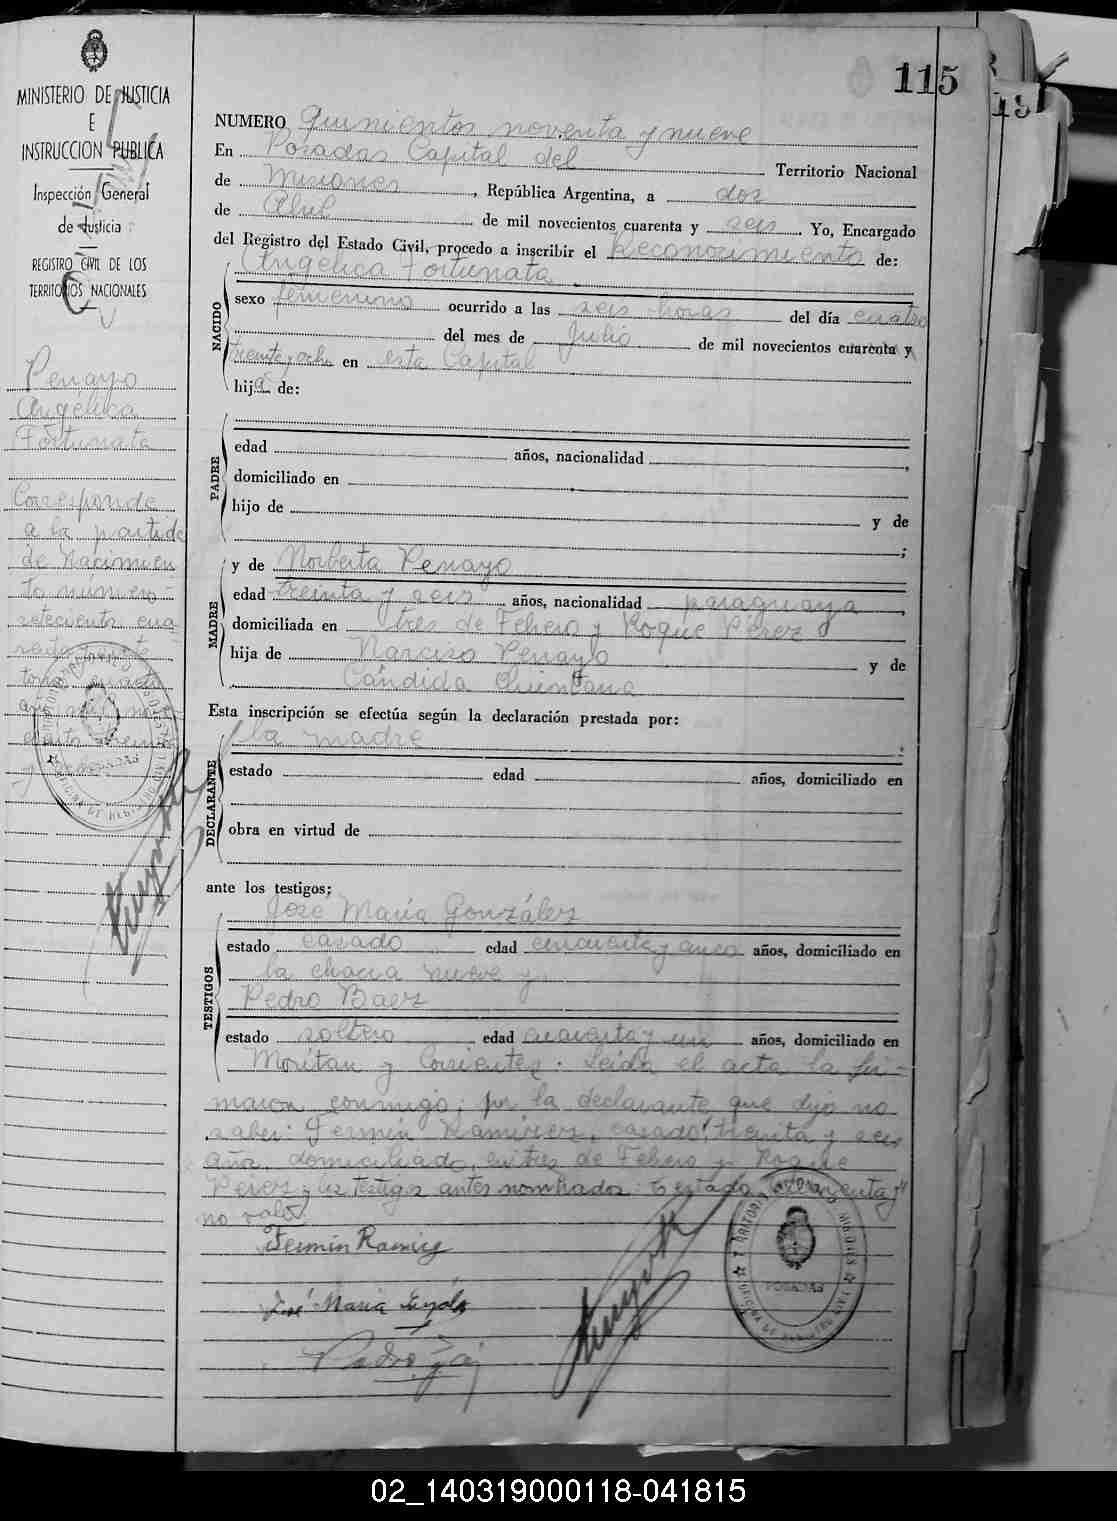 115
MINISTERIO DE JUSTICIA
E
INSTRUCCION PUBLICA
Inspección General
de Justicia
REGISTRO CIVIL DE LOS
TERRITORIOS NACIONALES
Penayo
Angélica
Fortunata
Corresponde
a la partida
de Nacimien
to número
setecientos cua
NUMERO Quinientos noventa y nueve
En Posadas Capital del Territorio Nacional
de Misiones, República Argentina, a dos
de Abril de mil novecientos cuarenta y seis. Yo, Encargado
del Registro del Estado Civil, procedo a inscribir el Reconocimiento de:
Angélica Fortunata
NACIDO
sexo femenino ocurrido a las seis horas del día cuatro
del mes de Julio de mil novecientos cuarenta y
treinta y ocho en esta Capital
hija de:
PADRE
edad años, nacionalidad
domiciliado en
hijo de y de
;
MADRE
y de Norberta Penayo
edad treinta y seis años, nacionalidad paraguaya
domiciliada en tres de Febrero y Roque Pérez
hija de Narciso Penayo y de
Cándida Quintana
Esta inscripción se efectúa según la declaración prestada por:
DECLARANTE
la madre
estado edad años, domiciliado en
obra en virtud de
ante los testigos;
TESTIGOS
José María González
estado casado edad cincuenta y cinco años, domiciliado en
la chacra nueve y
Pedro Baez
estado soltero edad cuarenta y un años, domiciliado en
y Corrientes. Leída el acta la fir-
maron conmigo; por la declarante que dijo no
saber: Fermín Ramírez, casado, treinta y seis
años, domiciliado en tres de Febrero y Roque
Pérez y los testigos antes nombrados:
no vale.
Fermín Ramírez
José María
Pedro
POSADAS
02_140319000118-041815